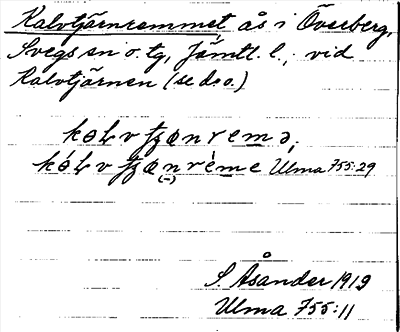 Kalvtjärnremmet ås i Överberg,
Svegs sn o. tg, Jämtl. l., vid
Kalvtjärnen (se d.o.)
kalv tjænremə,
kálv tjænrème Ulma 755:29
(-)
S. Åsander 1919
Ulma 755:11